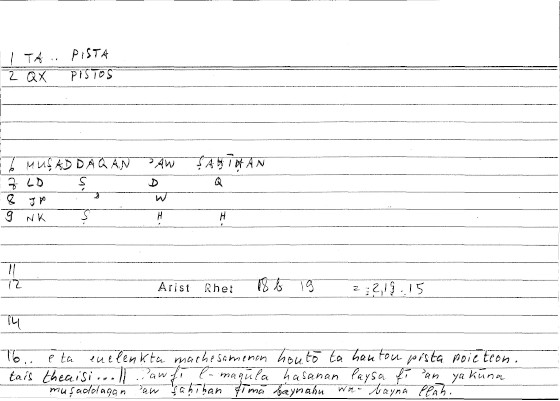 1 TA .. PISTA
2 QX PISTOS
6 MUṢADDAQAN ʾAW ṢAḤĪḤAN
7 LD Ṣ D Q
8 JP ʾ W
9 NK Ṣ Ḥ Ḥ
11
12 Arist Rhet 19 = 2,19 .15
14
16 .. ē ta euelenkta machesamenon houtō ta hautou pista poiēteon.
tais theaisi ...|| ..ʾaw fī l-maqūla hasanan laysa fī ʾan yakūna
muṣaddaqan ʾaw ṣaḥīḥan fīmā baynahu wa-bayna llāh.